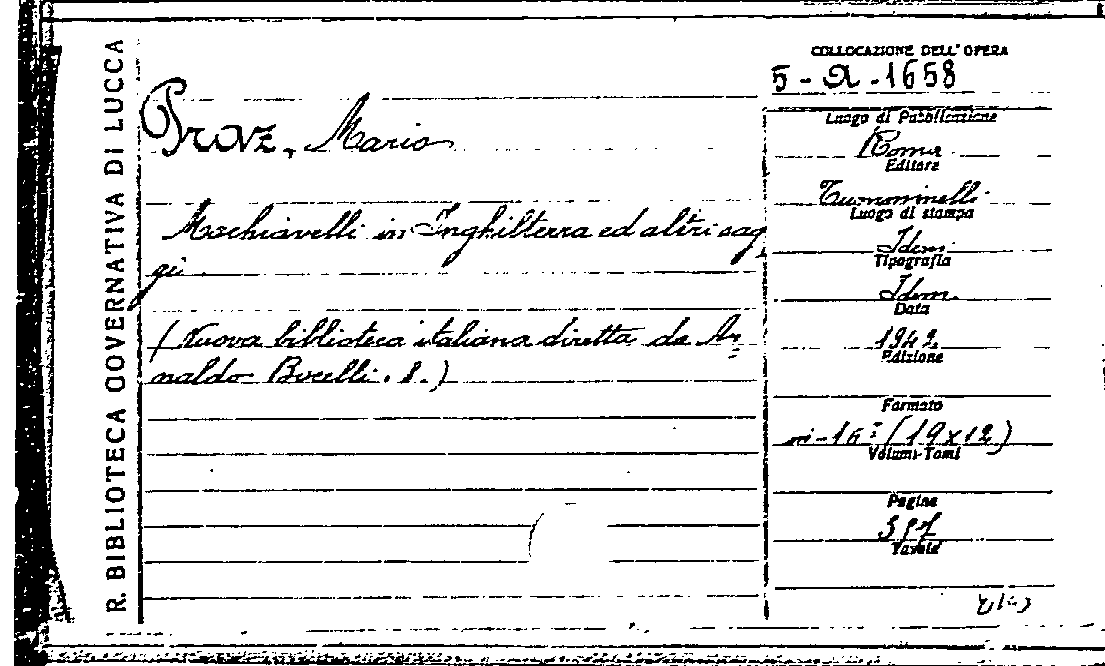 R. BIBLIOTECA GOVERNATIVA DI LUCCA
COLLOCAZIONE DELL'OPERA
5-A-1658
Praz, Mario
Machiavelli in Inghilterra ed altri sag
gi.
(Nuova biblioteca italiana diretta da Ar=
naldo Bocelli. 8.)
Luogo di Pubblicazione
Roma
Editore
Tumminelli
Luogo di stampa
Idem
Tipografia
Idem.
Data
1942
Edizione
Formato
in-16° (19x12)
Volumi-Tomi
Pagine
Tavole